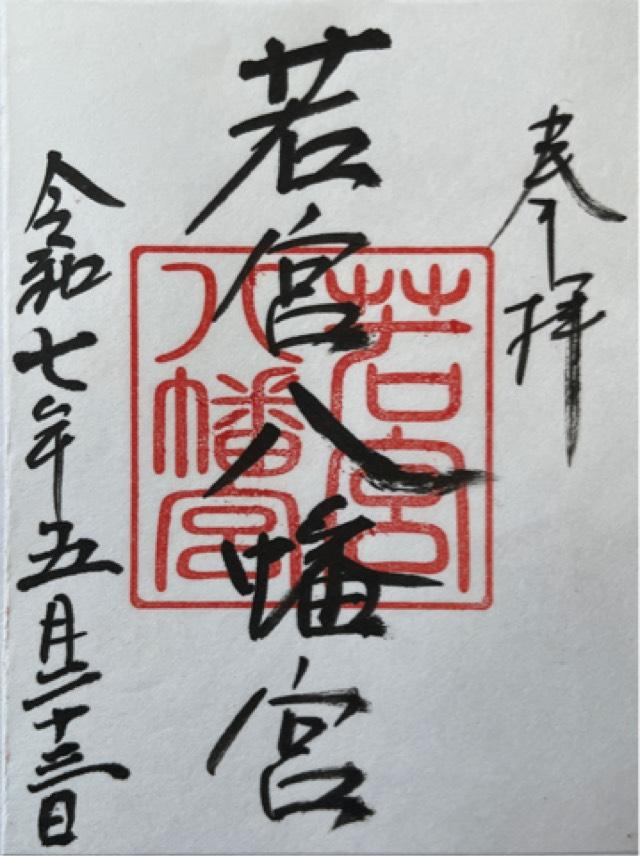 奉拝
若宮八幡宮
若宮
八幡宮
令和七年五月二十三日